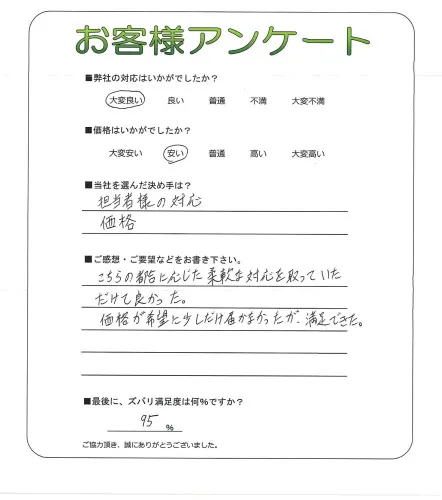 お客様アンケート
■弊社の対応はいかがでしたか？
大変良い 良い 普通 不満 大変不満
■価格はいかがでしたか？
大変安い 安い 普通 高い 大変高い
■当社を選んだ決め手は？
担当者様の対応
価格
■ご感想・ご要望などをお書き下さい。
こちらの都合に応じた柔軟な対応を取っていた
だけて良かった。
価格が希望に少しだけ届かなかったが、満足できた。
■最後に、ズバリ満足度は何％ですか？
95 ％
ご協力頂き、誠にありがとうございました。